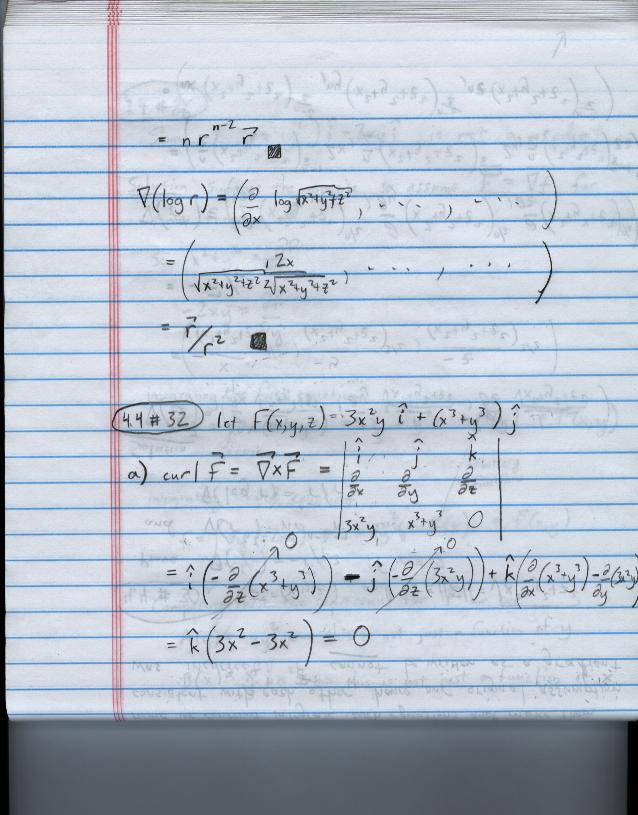 = n r^{n-2} \vec{r} ■
∇(log r) = (∂/∂x log √(x²+y²+z²), ..... , .....)
= (1/√(x²+y²+z²) · 2x/2√(x²+y²+z²), ... , ...)
= \vec{r}/r² ■
4.4 # 32 let F(x,y,z) = 3x²y î + (x³+y³) ĵ
a) curl \vec{F} = \vec{∇}×\vec{F} = | î ĵ k̂
∂/∂x ∂/∂y ∂/∂z
3x²y x³+y³ 0 |
= î(-∂/∂z(x³+y³))→0 - ĵ(-∂/∂z(3x²y))→0 + k̂(∂/∂x(x³+y³) - ∂/∂y(3x²y)
= k̂(3x² - 3x²) = 0